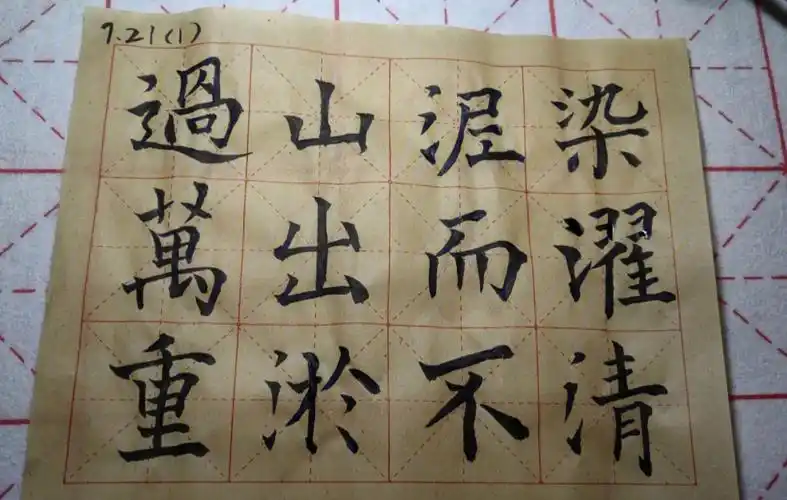 7.21(1)
過萬重
山出淤
泥而不
染濯清